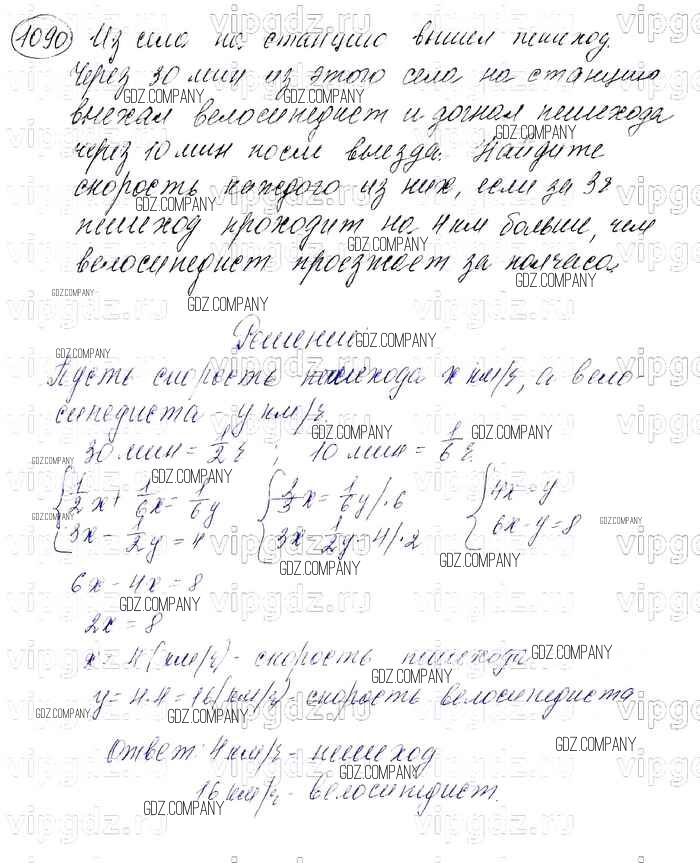 1090 Из села на станцию вышел пешеход.
Через 30 мин из этого села на станцию
выехал велосипедист и догнал пешехода
через 10 мин после выезда. Найдите
скорость каждого из них, если за 3ч
пешеход проходит на 4 км больше, чем
велосипедист проезжает за полчаса.
Решение:
Пусть скорость пешехода x км/ч, а вело-
сипедиста - y км/ч.
30 мин = 1/2 ч ; 10 мин = 1/6 ч.
{ 1/2x + 1/6x = 1/6y { 2/3x = 1/6y |·6 { 4x = y
3x - 1/2y = 4 3x - 1/2y = 4 |·2 6x - y = 8
6x - 4x = 8
2x = 8
x = 4 (км/ч) - скорость пешехода
y = 4·4 = 16 (км/ч) - скорость велосипедиста
Ответ: 4 км/ч - пешеход
16 км/ч - велосипедист.
GDZ.COMPANY
vipgdz.ru